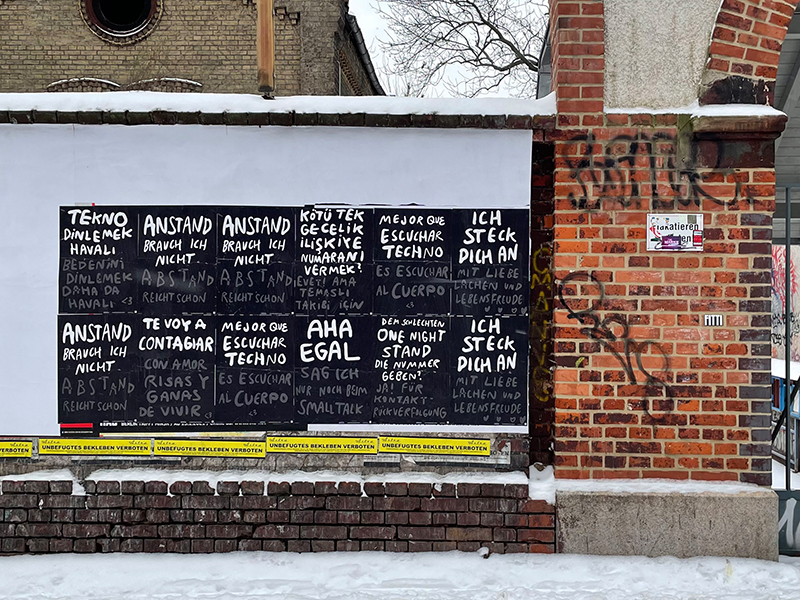 TEKNO
DINLEMEK
HAVALI
BEDENINI
DINLEMEK
DAHA DA
HAVALI <3
ANSTAND
BRAUCH ICH
NICHT
ABSTAND
REICHT SCHON
ANSTAND
BRAUCH ICH
NICHT
ABSTAND
REICHT SCHON
KÖTÜ TEK
GECELIK
ILIŞKIYE
NUMARANI
VERMEK?
EVET! AMA
TEMASLI
TAKIBI IÇIN
MEJOR QUE
ESCUCHAR
TECHNO
ES ESCUCHAR
AL CUERPO
ICH
STECK
DICH AN
MIT LIEBE
LACHEN UND
LEBENSFREUDE
ANSTAND
BRAUCH ICH
NICHT
ABSTAND
REICHT SCHON
TE VOY A
CONTAGIAR
CON AMOR
RISAS Y
GANAS
DE VIVIR
MEJOR QUE
ESCUCHAR
TECHNO
ES ESCUCHAR
AL CUERPO
<3
AHA
EGAL
SAG ICH
NUR NOCH BEIM
SMALLTALK
DEM SCHLECHTEN
ONE NIGHT
STAND
DIE NUMMER
GEBEN?
JA! FÜR
KONTAKT-
RÜCKVERFOLGUNG
ICH
STECK
DICH AN
MIT LIEBE
LACHEN UND
LEBENSFREUDE
UNBEFUGTES BEKLEBEN VERBOTEN
UNBEFUGTES BEKLEBEN VERBOTEN
UNBEFUGTES BEKLEBEN VERBOTEN
UNBEFUGTES BEKLEBEN VERBOTEN